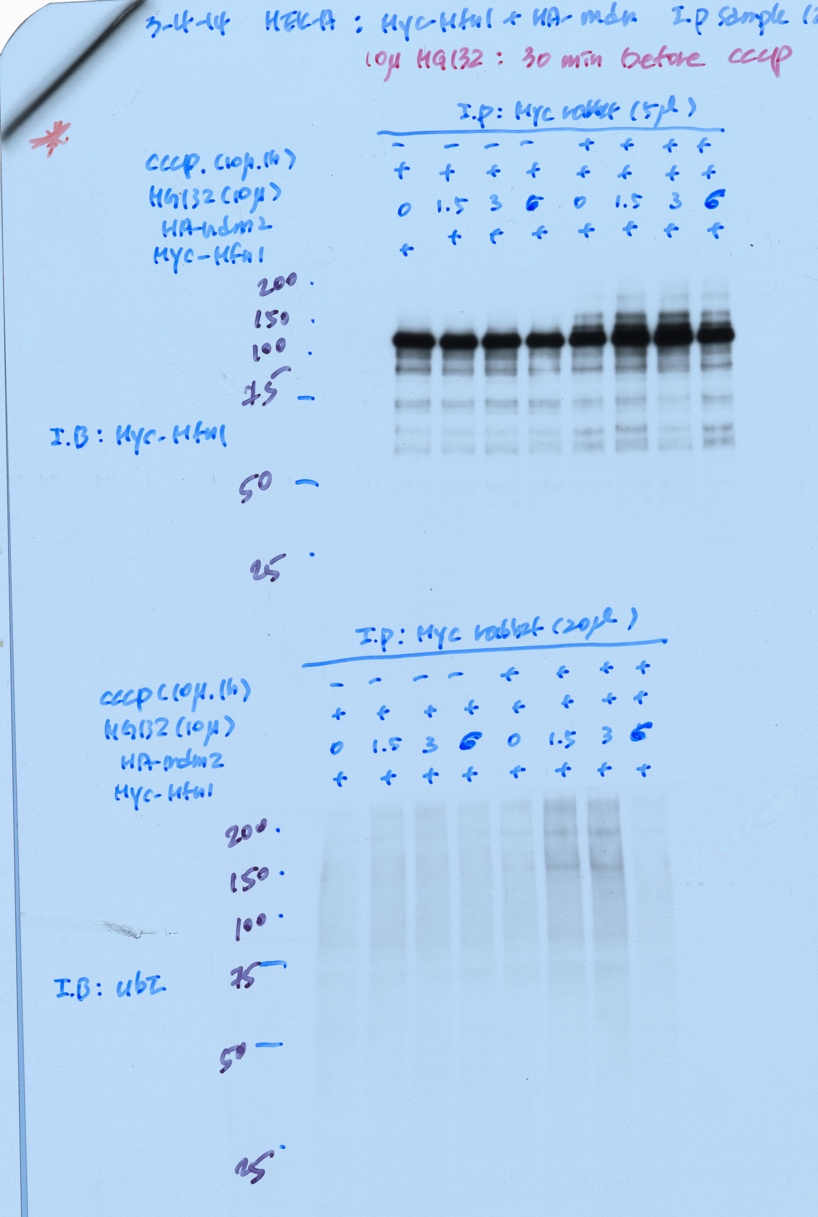 3-4-14 HEK-A : Myc-Mfn1 + HA-mdm I.p sample (2
10μ MG132 : 30 min before cccp
I.p: Myc rabbit (5μl)
cccp. (10μ. 1h) - - - - + + + +
MG132 (10μ) + + + + + + + +
HA-mdm2 0 1.5 3 6 0 1.5 3 6
Myc-Mfn1 + + + + + + + +
200
150
100
75
I.B: Myc-Mfn1
50
25
I.p: Myc rabbit (20μl)
cccp (10μ. 1h) - - - - + + + +
MG132 (10μ) + + + + + + + +
HA-mdm2 0 1.5 3 6 0 1.5 3 6
Myc-Mfn1 + + + + + + + +
200
150
100
75
I.B: ubi
50
25